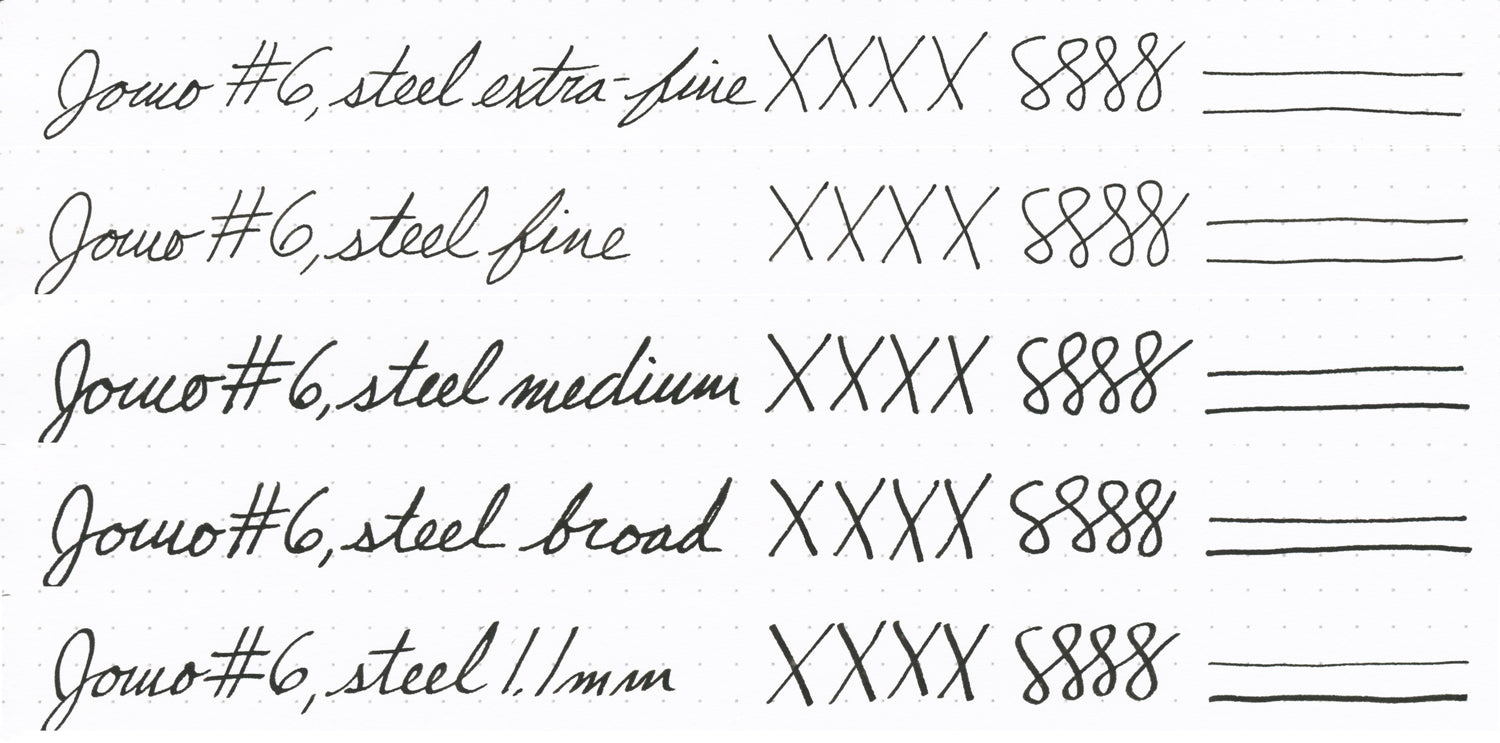 Jowo #6, steel extra-fine XXXX 8888
Jowo #6, steel fine XXXX 8888
Jowo #6, steel medium XXXX 8888
Jowo #6, steel broad XXXX 8888
Jowo #6, steel 1.1mm XXXX 8888